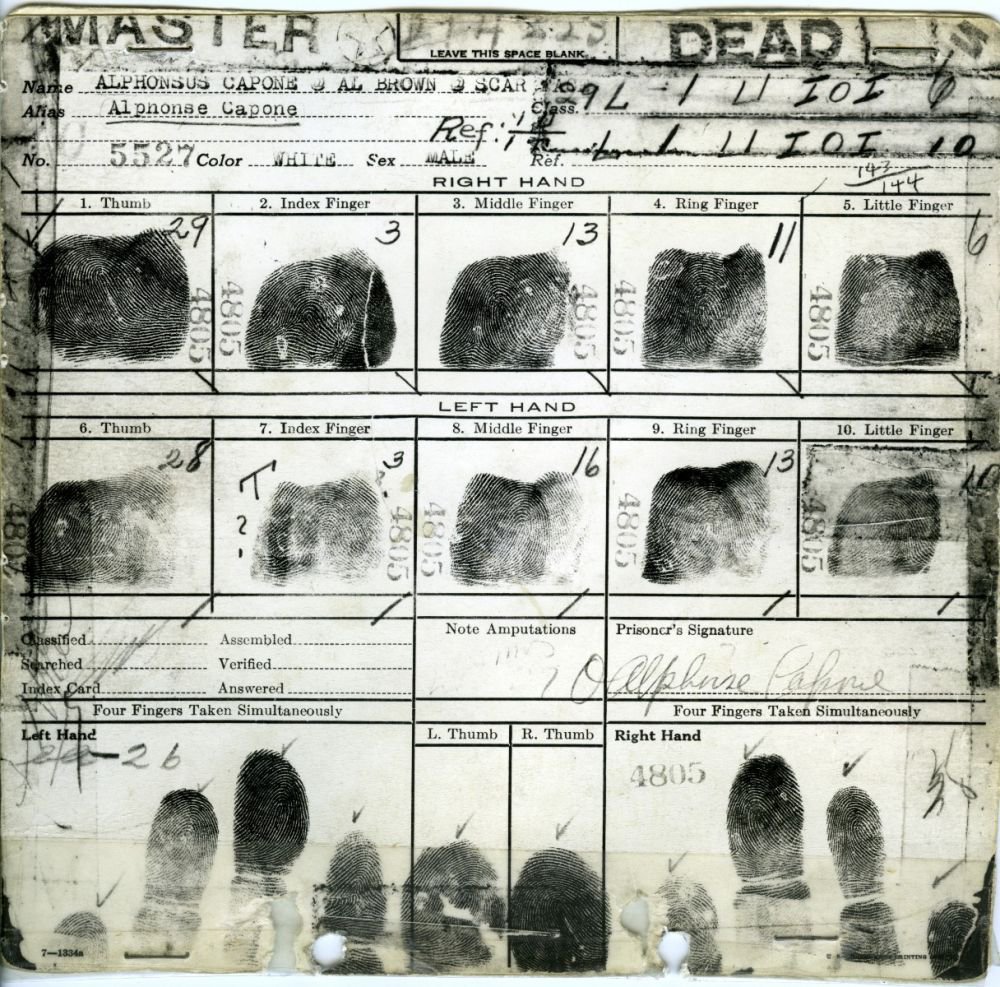 MASTER DEAD
LEAVE THIS SPACE BLANK
Name ALPHONSUS CAPONE @ AL BROWN @ SCAR
Class. 9 L 1 U IOI 6
Alias Alphonse Capone
Ref:
Ref. L 1 U IOI 10
No. 5527 Color WHITE Sex MALE
143/144
RIGHT HAND
1. Thumb 2. Index Finger 3. Middle Finger 4. Ring Finger 5. Little Finger
29 3 13 11 6
4805 4805 4805 4805
LEFT HAND
6. Thumb 7. Index Finger 8. Middle Finger 9. Ring Finger 10. Little Finger
28 T 3 16 13
?
4805 4805 4805 4805 4805
Classified Assembled
Searched Verified
Index Card Answered
Note Amputations
Prisoner's Signature
Alphonse Capone
Four Fingers Taken Simultaneously
Four Fingers Taken Simultaneously
Left Hand L. Thumb R. Thumb Right Hand
26
4805
7—1334a